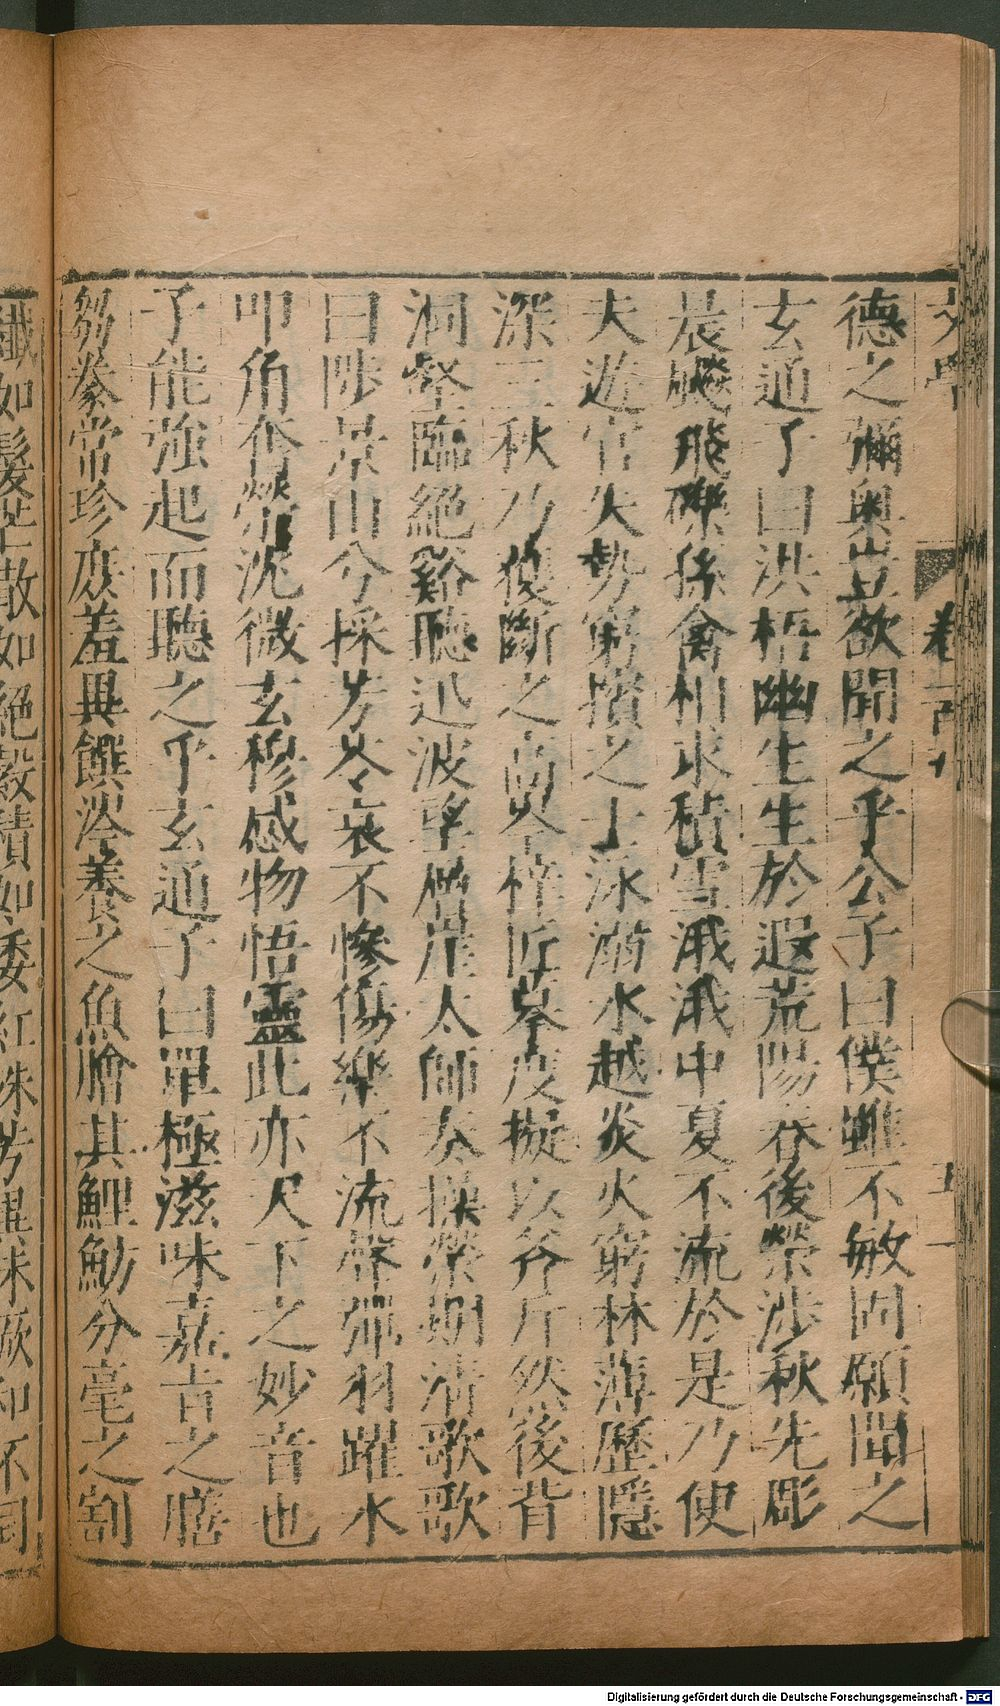 德之彌奧豈欲聞之乎公子曰僕雖不敏固願聞之
玄通子曰洪梧幽生生於遐荒陽春後榮涉秋先彫
晨飈飛礫孫禽相求積雪涐涐中夏不流於是乃使
夫遊官失勢窮擯之士泳溺水越炎火窮林薄歷隱
深三秋乃獲斷之高岑梓匠摹度擬以斧斤然後背
洞壑臨絕谿聽迅波望層崖太師奏操榮期清歌歌
曰陟景山兮採芳苓哀不慘傷樂不流聲彈羽躍水
叩角奮榮沈微玄穆感物悟靈此亦天下之妙音也
子能強起而聽之乎玄通子曰單極滋味嘉旨之膳
芻豢常珍庶羞異饌涔養之魚膾其鯉魴分毫之割
纖如髮芒散如絕縠積如委紅殊芳異味厥和不同
文學
卷一百十
五
Digitalisierung gefördert durch die Deutsche Forschungsgemeinschaft - DFG